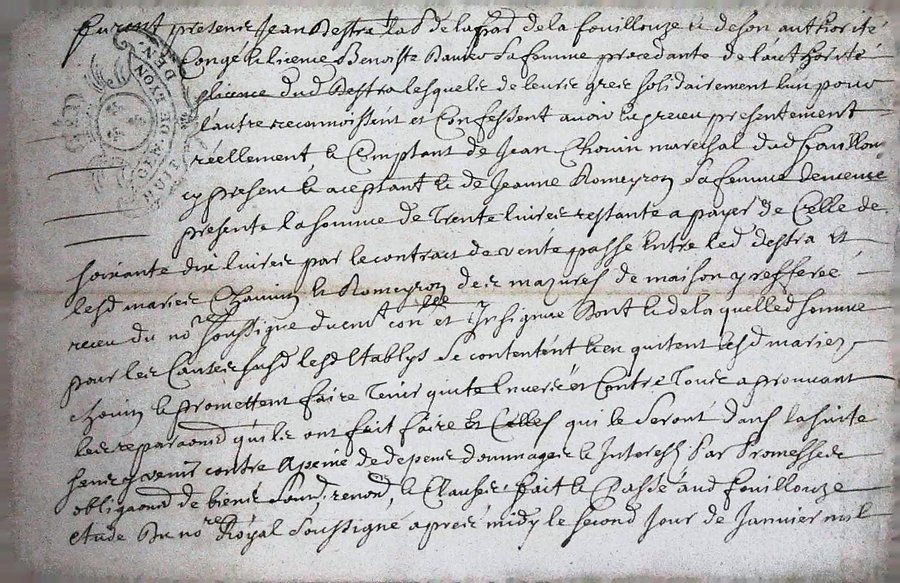 furent presens Jean Destra lab de la par de la fouillouze & de son authorité
Congé & licence Benoiste sa femme procedante de l'authorité
& licence dud Destra lesquels de leurs grés solidairement l'un pour
l'autre reconnoissent et Confessent avoir & receu presentement
réellement & Comptant de Jean Chovin mareschal dud fouillou
cy present & aceptant & de Jeanne Romeyron sa femme
presente la somme de Trente livres restante a payer de Celle de
soixante dix livres par le contract de vente passé Entre led destra et
lesd mariés Chovin & Romeyron des mazures de maison y refferée
receu du no.re soussigné con.llé et Insignué Dont & de laquelle somme
pour les Causes susd lesd Establys se contentent & en quitent lesd mariés
Chovin & promettent faire Tenir quite Envers et Contre Tous aprouvant
les reparaons quils ont fait faire Et Celles qui se seront dans la suite
sens y venir contre Apeine de depens dommages & Interests Par Promesses
obligaons de biens & Clauses fait & Passé aud fouillouze
etude Du no.re Royal soussigné apres midy le second Jour de Janvier mil
LYON
DEN.